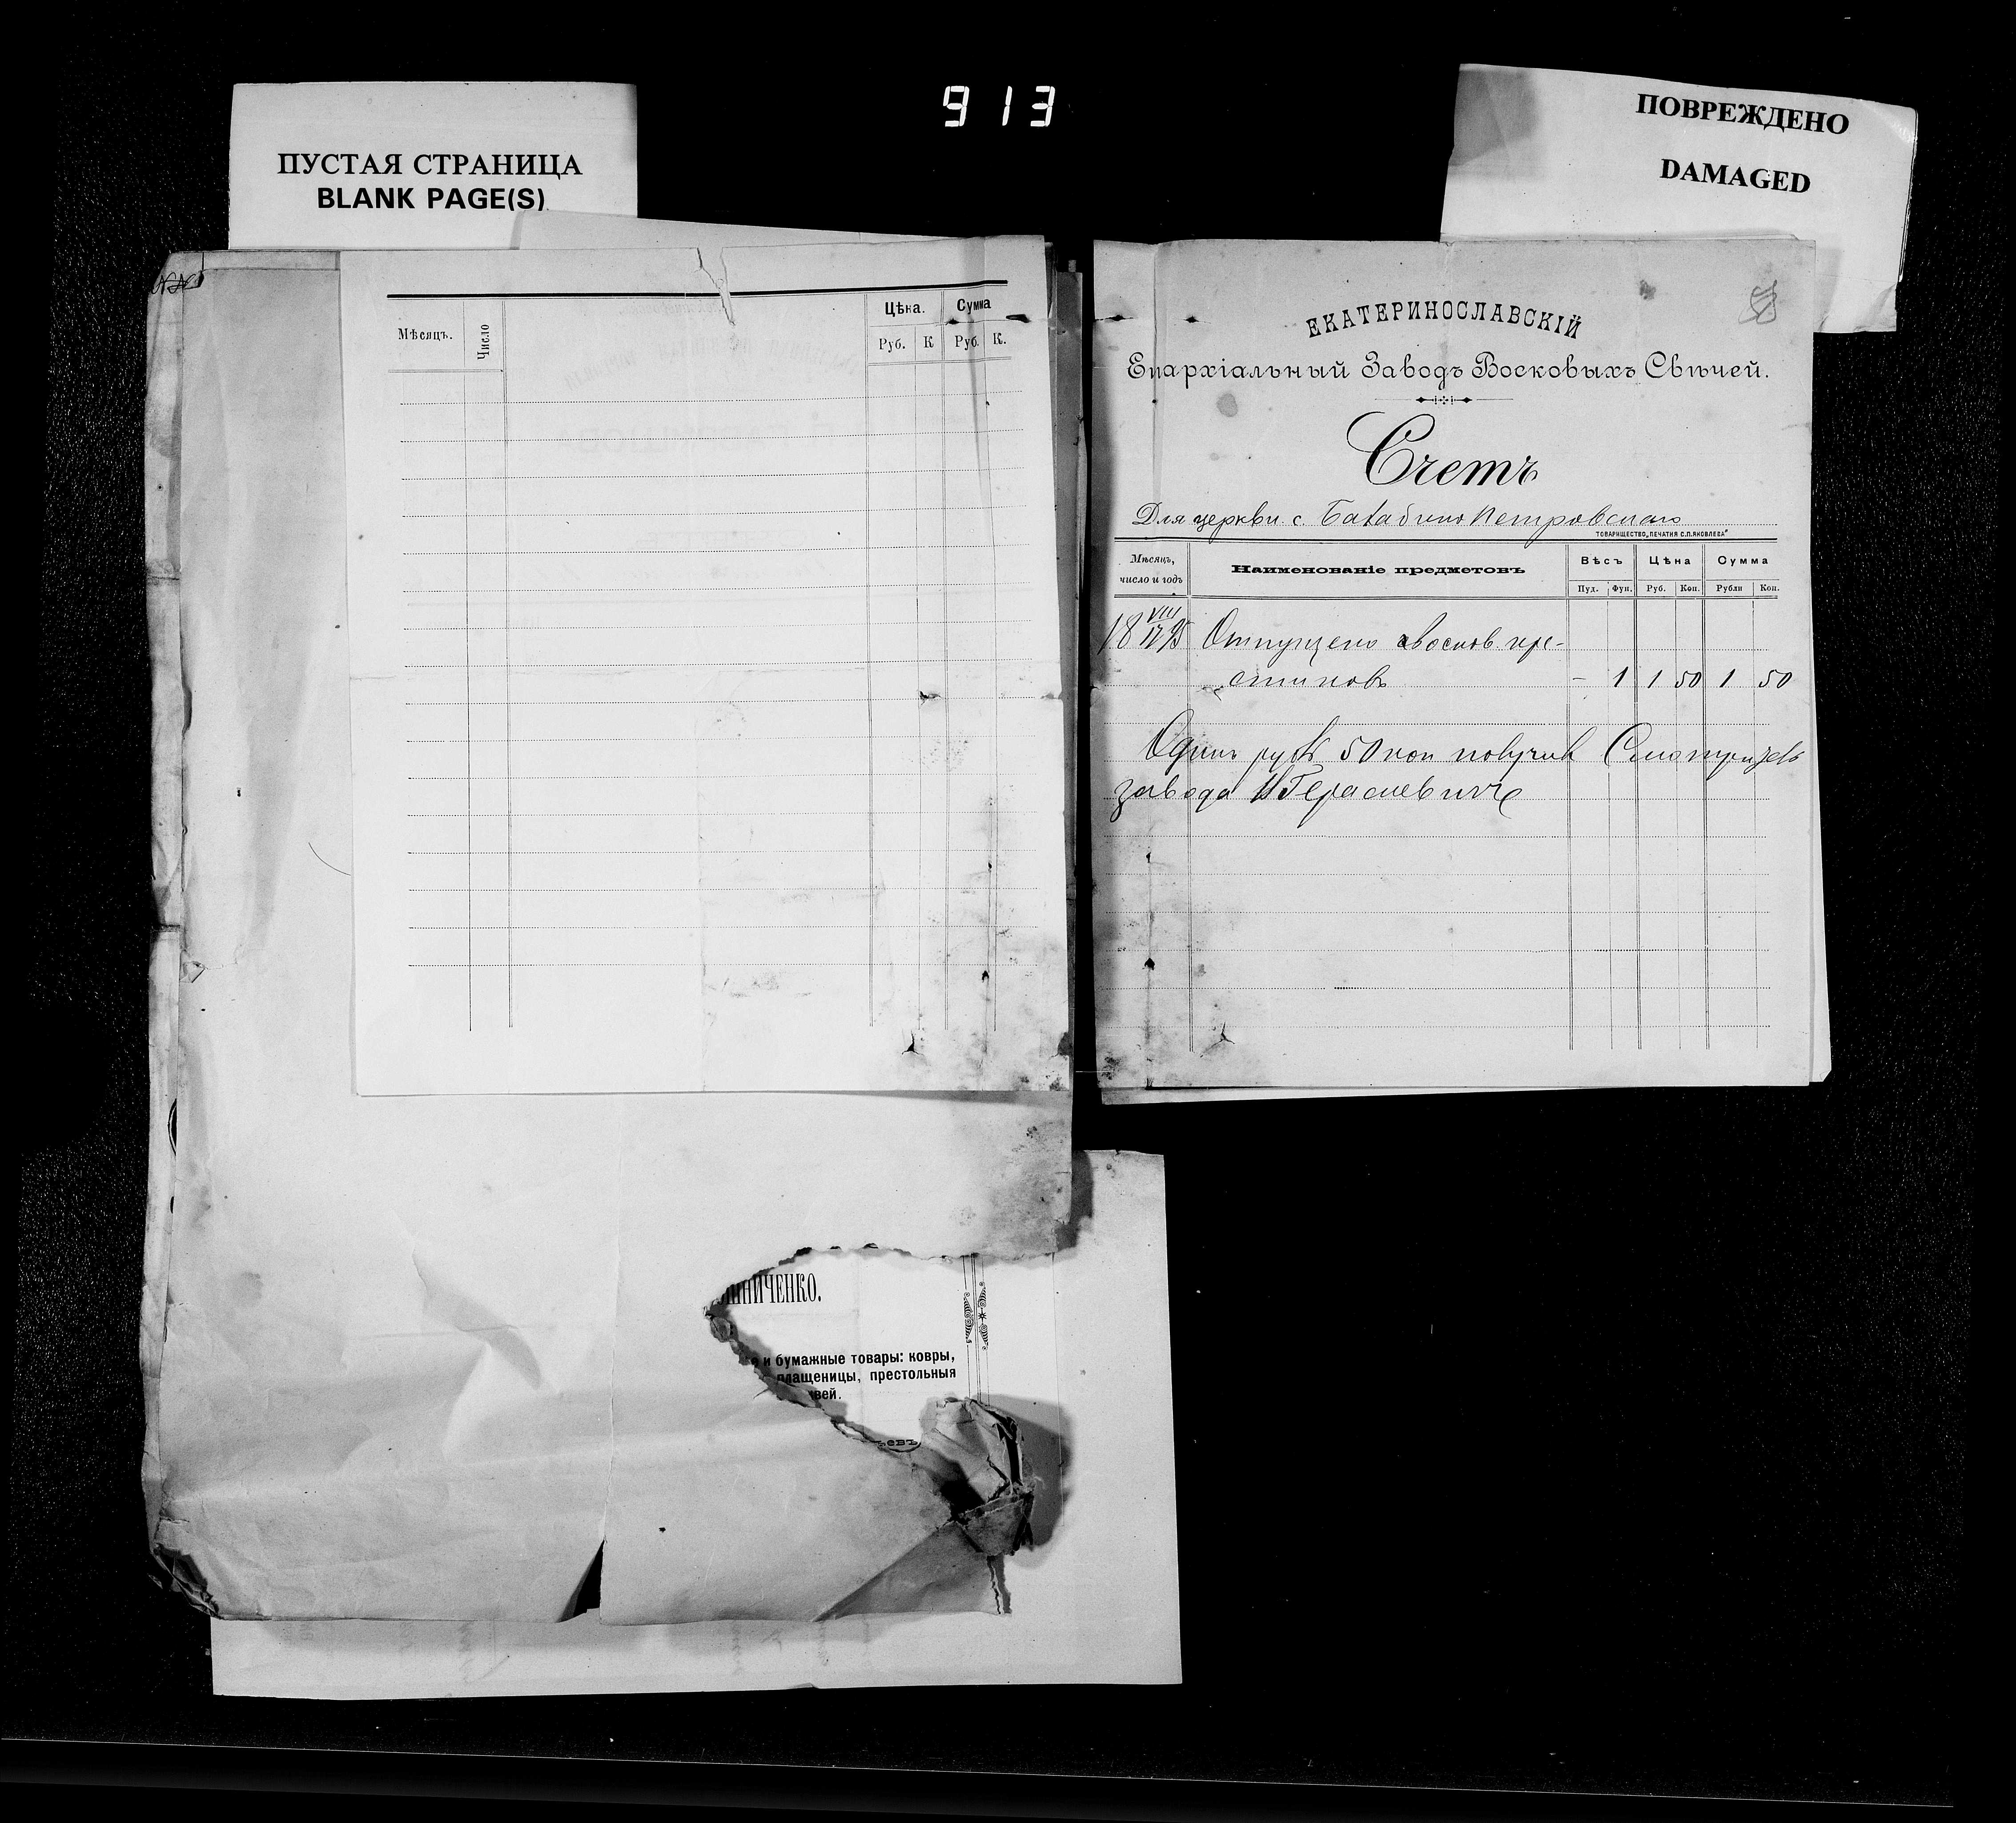 913
ПУСТАЯ СТРАНИЦА
BLANK PAGE(S)
ПОВРЕЖДЕНО
DAMAGED
Мѣсяцъ. Число Цѣна. Сумма
Руб. К Руб. К.
ЕКАТЕРИНОСЛАВСКІЙ
Епархіальный Заводъ Восковыхъ Свѣчей.
Счетъ
Для церкви с. Балабино Петровскаго
ТОВАРИЩЕСТВО „ПЕЧАТНЯ С.П.ЯКОВЛЕВА"
Мѣсяцъ, число и годъ Наименованіе предметовъ Вѣсъ Цѣна Сумма
Пуд. Фун. Руб. Коп. Рубли Коп.
18 VIII 17 95 Отпущено восков. кре-
стиковъ – 1 1 50 1 50
Одинъ рубль 50 коп получилъ Смотритель
завода Герасевичъ
ИНИЧЕНКО.
и бумажные товары: ковры,
плащеницы, престольныя
вей.
евъ